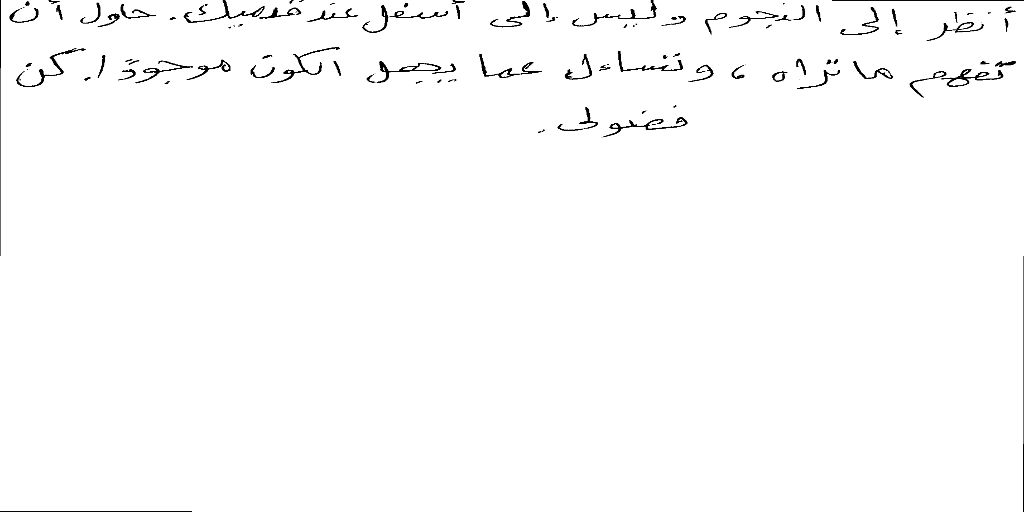 أنظر إلى النجوم وليس إلى أسفل عند قدميك. حاول أن
تفهم ما تراه ، وتساءل عما يجعل الكون موجودًا. كن
فضولى.